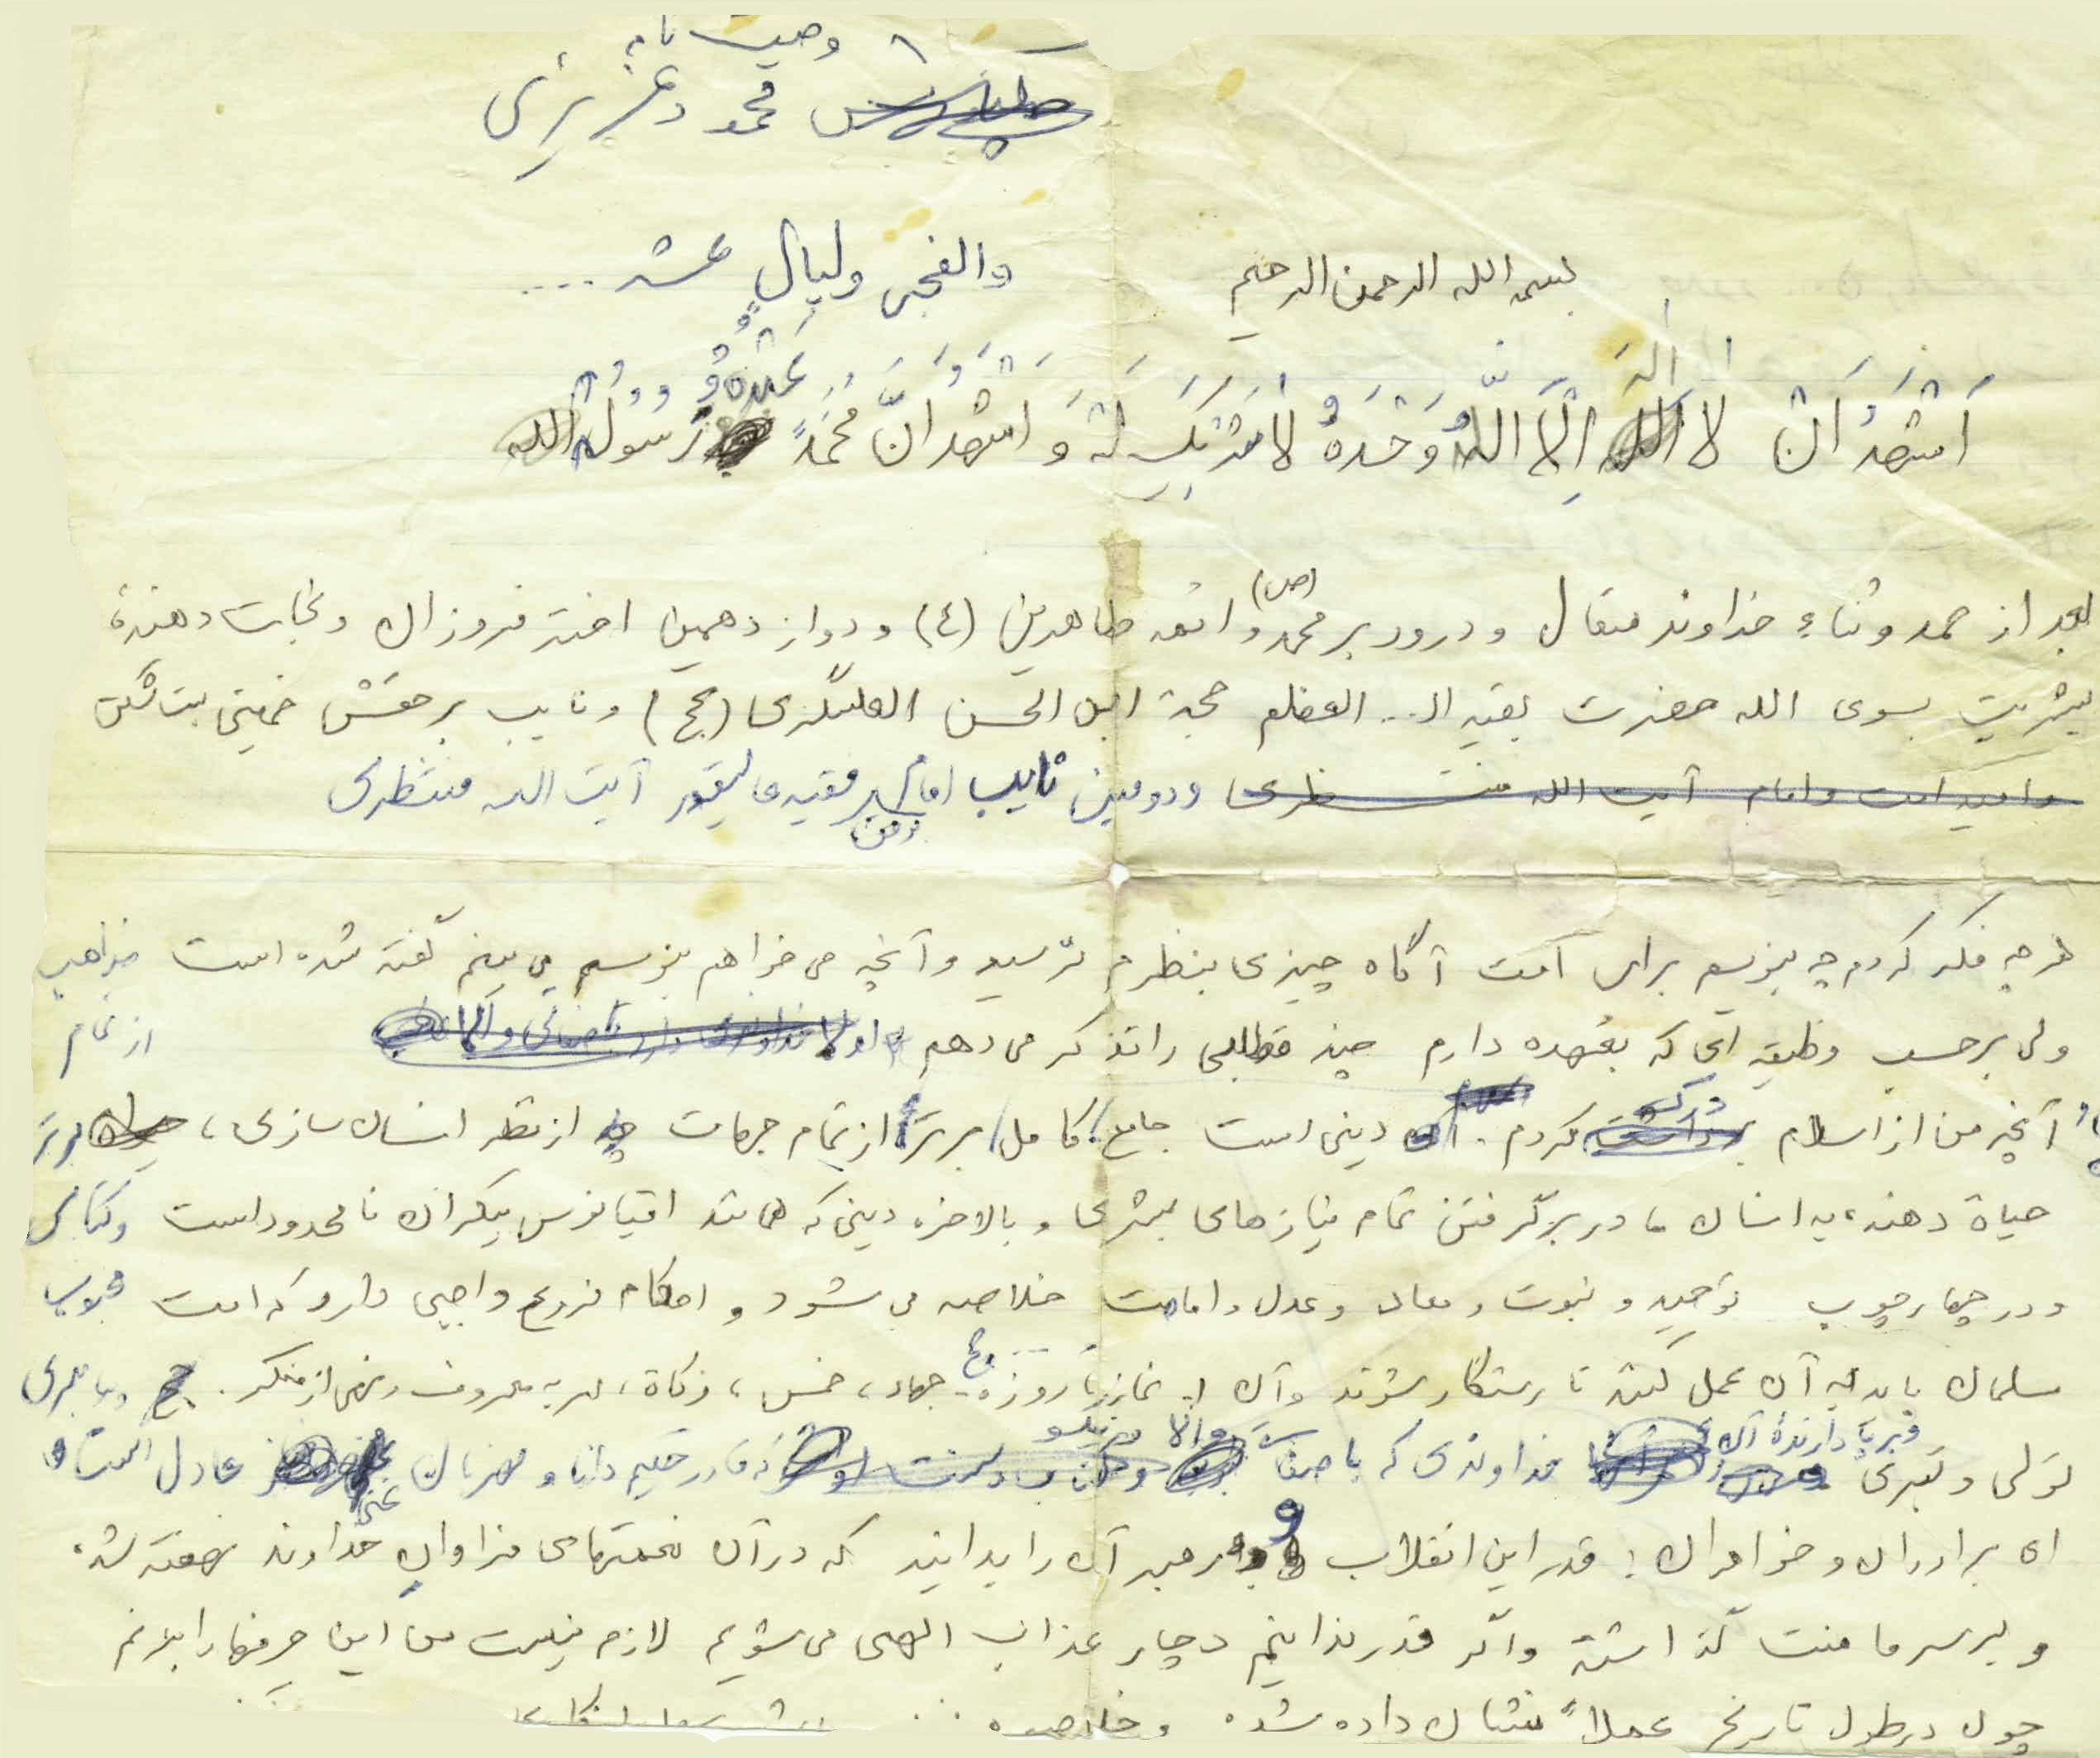 وصیت نامه
محمود عزیزی
بسم الله الرحمن الرحیم
والفجر ولیالٍ عشر ....
اَشْهَدُ اَنْ لا اِلهَ اِلَّا اللَّهُ وَحْدَهُ لا شَریکَ لَهُ وَ اَشْهَدُ اَنَّ مُحَمَّدً عَبْدُهُ وَ رَسُولُهُ
بعد از حمد و ثناءِ خداوند متعال و درود بر محمد (ص) و ائمه طاهرین (ع) و دوازدهمین اختر فروزان و نجات دهندهٔ
بشریت بسوی الله حضرت بقیه ا... العظم حجة ابل الحسن العسگری (عج) و نایب برحقش خمینی بت شکن
و امید امت و امام آیت الله منتظری و دومین نایب امام زمان فقیه عالیقدر آیت الله منتظری
هر چه فکر کردم چه بنویسم برای امت آگاه چیزی بنظرم نرسید و آنچه می خواهم بنویسم می بینم گفته شده است
ولی برحسب وظیفه ای که بعهده دارم چند مطلبی را تذکر می دهم
آنچه من از اسلام درک کردم. دینی است جامع، کامل، برتر از تمام جهات از نظر انسان سازی،
حیاة دهنده به انسان، در برگرفتن تمام نیازهای بشری و بالاخره دینی که همانند اقیانوس بیکران نامحدود است و کتابی
و در چهارچوب توحید و نبوت و معاد و عدل و امامت خلاصه می شود و احکام فروع واجبی دارد که امت
مسلمان باید به آن عمل کنند تا رستگار شوند و آن از نماز، روزه، حج، جهاد، خمس، زکاة، امر به معروف و نهی از منکر.
تولی و تبری خداوندی که با صفات قادر حکیم دانا و مهربان عادل است
ای برادران و خواهران! قدر این انقلاب و رهبر آن را بدانید که در آن نعمتهای فراوان خداوند نهفته شده
و بر سر ما منت گذاشته و اگر قدر ندانیم دچار عذاب الهی می شویم لازم نیست من این حرفها را بزنم
چون در طول تاریخ عملاً نشان داده شده و خلاصه